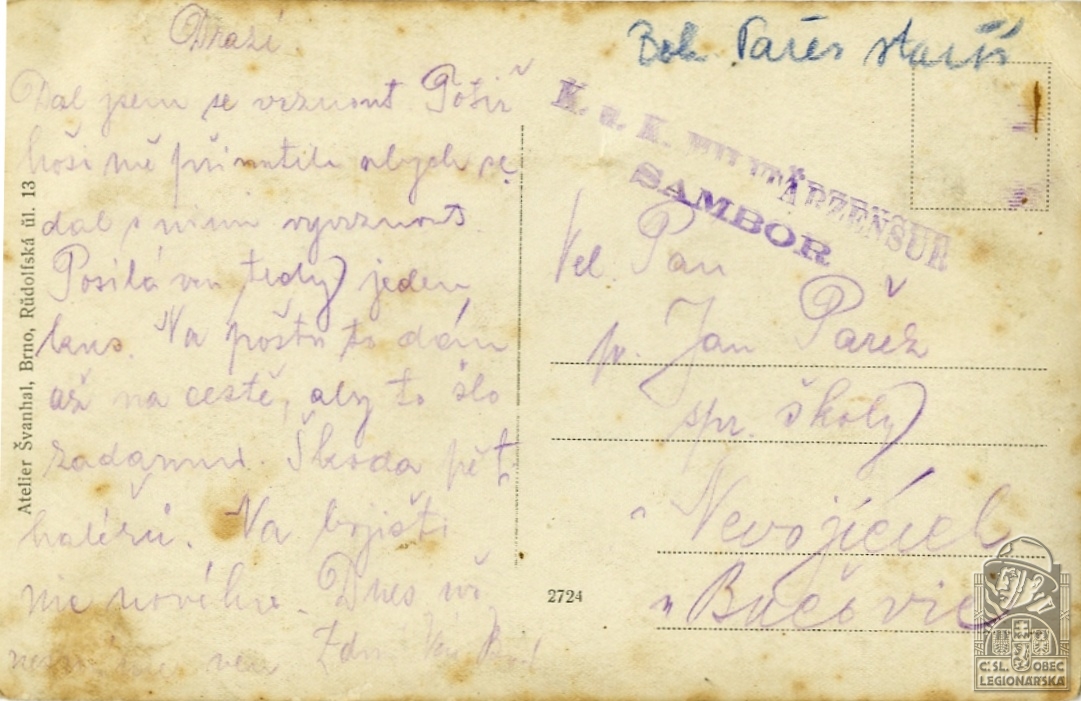 Drazí.
Dal jsem se vrznout. Pošiř
hoši mě přinutili abych se
dal s nimi vyvrznout.
Posílá vm tedy jeden
kus. Na poštu to dám
až na cestě, aby to šlo
zadarmo. Škoda pět
haléřů. Na bojišti
nic nového. Dnes
ven Zdrav Váš
Atelier Švanhal, Brno, Růdolfská ul. 13
2724
Boh. Pařes starší
K. u. K. MILITÄRZENSUR
SAMBOR
Vel. Pan
p. Jan Pařež
spr. školy
v Nevojicích
u Bučovic
Č.SL. OBEC
LEGIONÁŘSKÁ